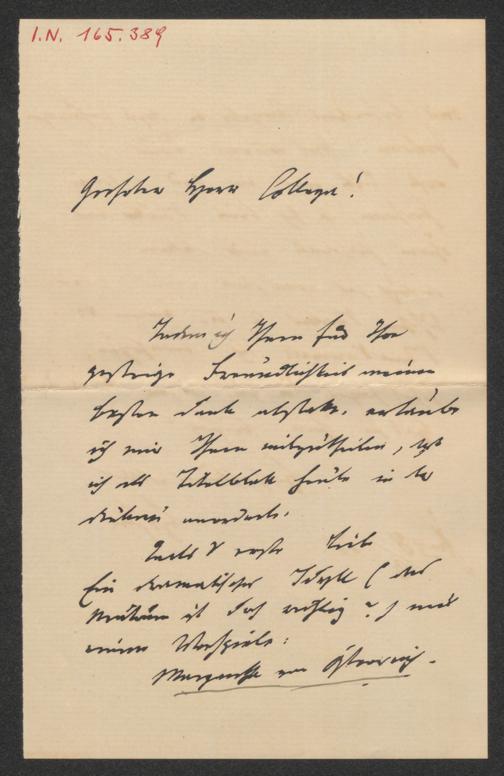 I.N. 165.389
Geehrter Herr College!
Indem ich Ihnen für Ihre
gestrige Freundlichkeit meinen
besten Dank abstatte, erlaube
ich mir Ihnen mitzutheilen, daß
ich als Titelblatt heute in der
Druckerei anordnete:
erste Liebe
Ein dramatisches Idyll (das
Neutrum ist doch richtig?) und
einem Vorspiele:
Margarethe von Österreich.